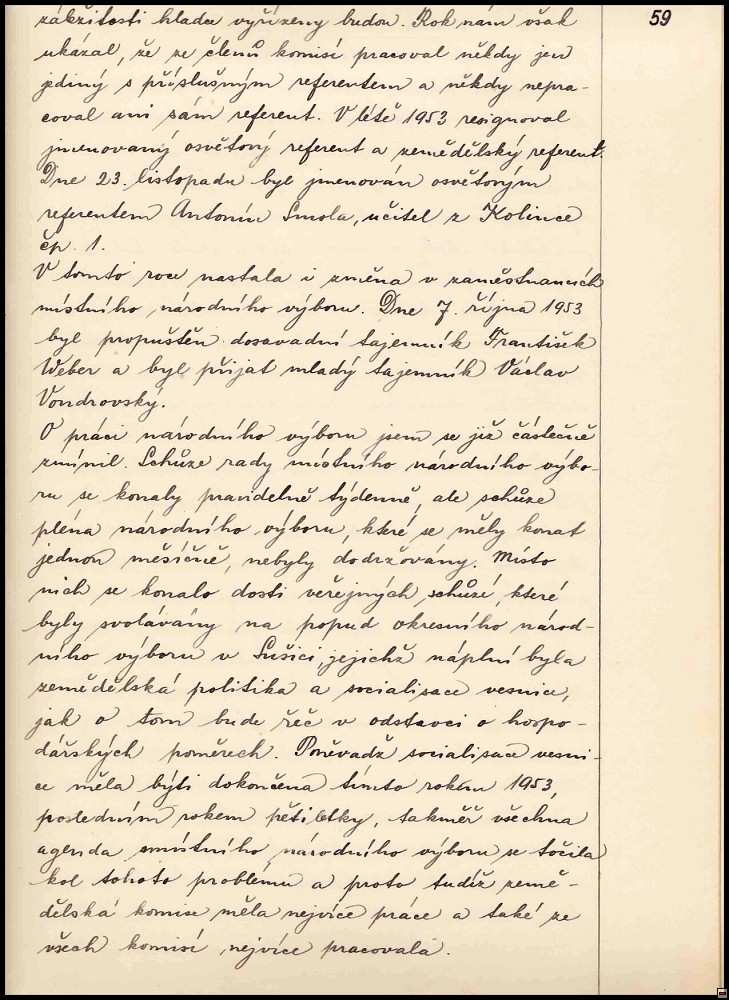 59
záležitosti hladce vyřízeny budou. Rok nám však
ukázal, že ze členů komisí pracoval někdy jen
jediný s příslušným referentem a někdy nepra-
coval ani sám referent. V létě 1953 resignoval
jmenovaný osvětový referent a zemědělský referent.
Dne 23. listopadu byl jmenován osvětovým
referentem Antonín Smola, učitel z Kolince
čp. 1.
V tomto roce nastala i změna v zaměstnancích
místního národního výboru. Dne 7. října 1953
byl propuštěn dosavadní tajemník František
Weber a byl přijat mladý tajemník Václav
Vondrovský.
O práci národního výboru jsem se již částečně
zmínil. Schůze rady místního národního výbo-
ru se konaly pravidelně týdenně, ale schůze
pléna národního výboru, které se měly konat
jednou měsíčně, nebyly dodržovány. Místo
nich se konalo dosti veřejných schůzí, které
byly svolávány na popud okresního národ-
ního výboru v Sušici, jejichž náplní byla
zemědělská politika a socialisace vesnice,
jak o tom bude řeč v odstavci o hospo-
dářských poměrech. Poněvadž socialisace vesni-
ce měla býti dokončena tímto rokem 1953,
posledním rokem pětiletky, takměř všechna
agenda místního národního výboru se točila
kol tohoto problemu a proto tudíž země-
dělská komise měla nejvíce práce a také ze
všech komisí nejvíce pracovala.